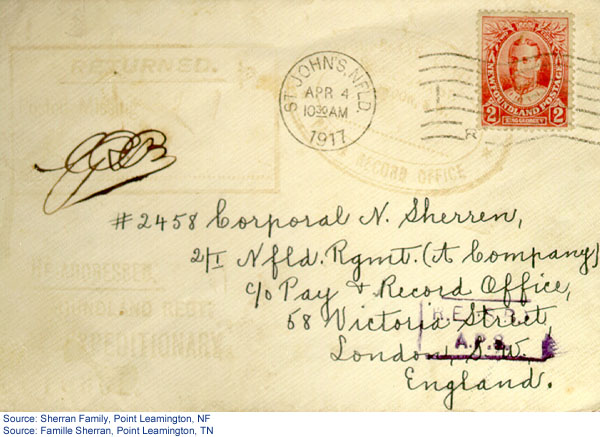 RETURNED.
ST. JOHN'S, NFLD.
APR 4
10 30 AM
1917
NEWFOUNDLAND POSTAGE
2 2
KING GEORGE V
RECORD OFFICE
#2458 Corporal N. Sherren,
2/I Nfld. Rgmt. (A Company)
c/o Pay & Record Office,
58 Victoria Street,
London, S.W.
England.
A.P.S.
EXPEDITIONARY
Source: Sherran Family, Point Leamington, NF
Source: Famille Sherran, Point Leamington, TN